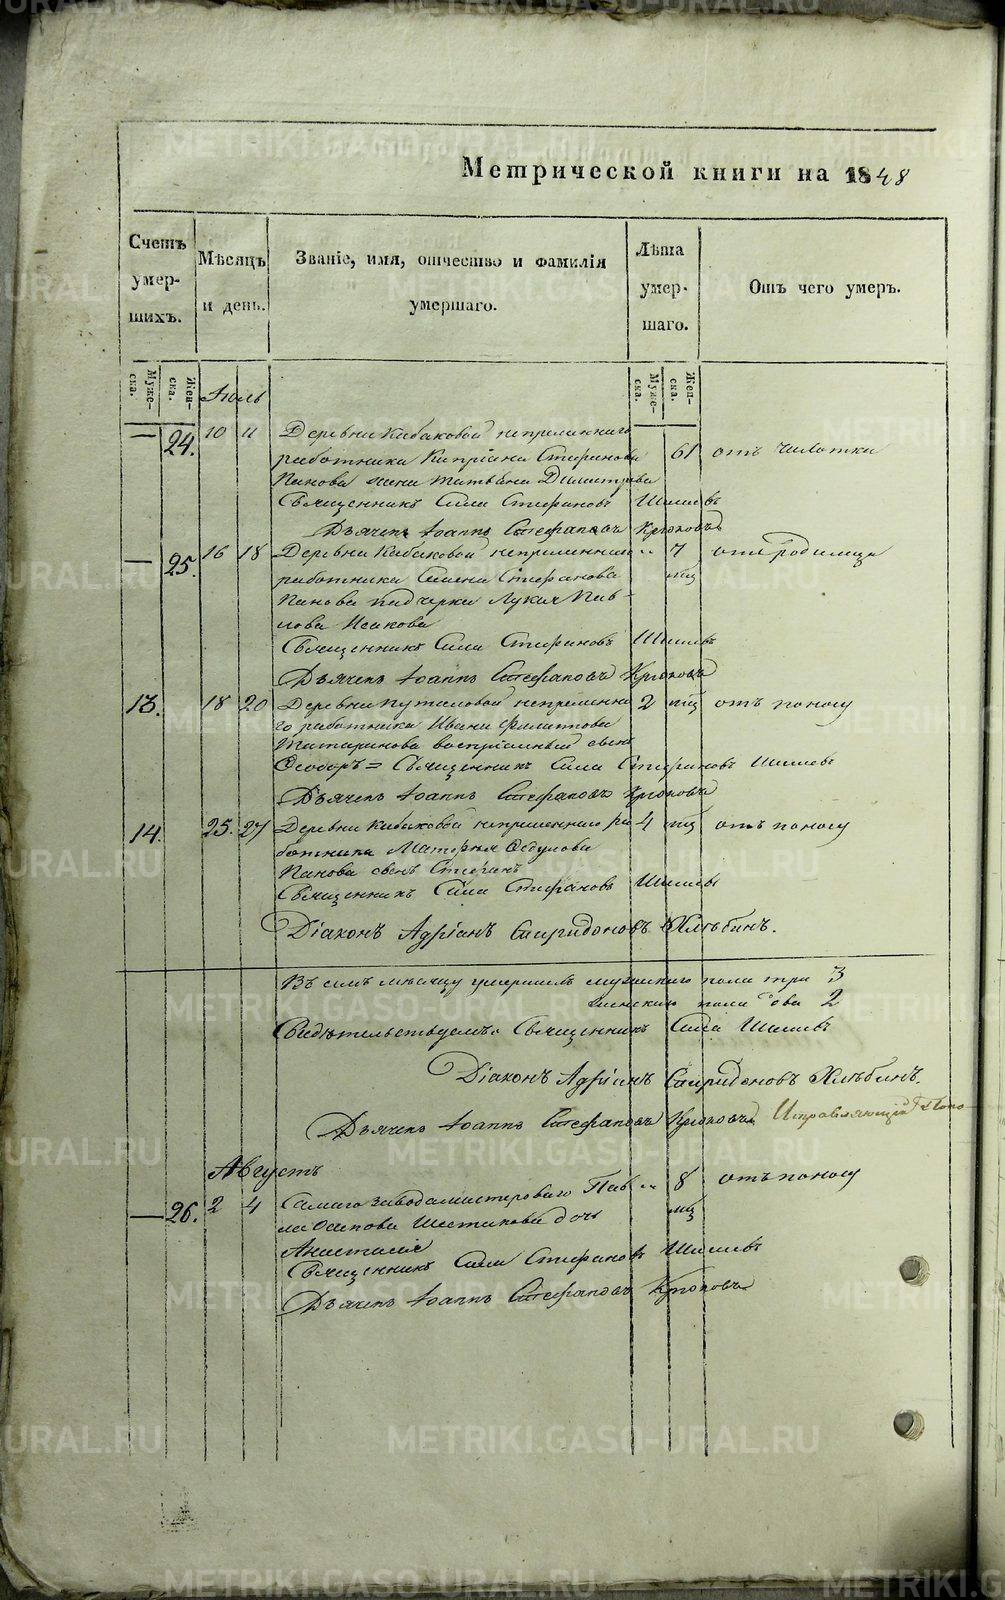 Метрической книги на 1848
Счетъ умер-шихъ.
Мѣсяцъ и день.
Званіе, имя, отчество и фамилія умершаго.
Лѣта умер-шаго.
Отъ чего умеръ.
Муже-ска.
Жен-ска.
Муже-ска.
Жен-ска.
Іюль
— 24. 10 11 Деревни Кабаковой непременнаго
работника Кипріана Стефанова 61 отъ чахотки
Панова жена Татьяна Димитріева
Священникъ Сила Стефановъ Шишевъ
Дьячекъ Іоаннъ Стефановъ Крюковъ
— 25. 16 18 Деревни Кабаковой непременнаго " 7 отъ родимца
работника Семена Стефанова мц
Панова падчерка Лукія Пав-
лова Исакова
Священникъ Сила Стефановъ Шишевъ
Дьячекъ Іоаннъ Стефановъ Крюковъ
13. 18 20 Деревни Путиловой непременна- 2 мц отъ поносу
го работника Ивана Филиппова
Татаринова воспріемный сынъ
Ѳеодоръ = Священникъ Сила Стефановъ Шишевъ
Дьячекъ Іоаннъ Стефановъ Крюковъ
14. 25. 27 Деревни Кабаковой непременнаго ра- 4 мц отъ поносу
ботника Ѳедулова
Панова сынъ Стефанъ
Священникъ Сила Стефановъ Шишевъ
Діаконъ Адріанъ Спиридоновъ Хлѣбинъ.
Въ семъ месяцу умершихъ мужескаго пола три 3
женскаго пола два 2
Свидѣтельствуемъ: Священникъ Сила Шишевъ
Діаконъ Адріанъ Спиридоновъ Хлѣбинъ.
Дьячекъ Іоаннъ Стефановъ Крюковъ Исправляющій
Августъ
— 26. 2 4 Самаго завода мастероваго Пав- " 8 отъ поносу
ла Осипова Шестакова дочь мц
Анастасія
Священникъ Сила Стефановъ Шишевъ
Дьячекъ Іоаннъ Стефановъ Крюковъ
METRIKI.GASO-URAL.RU